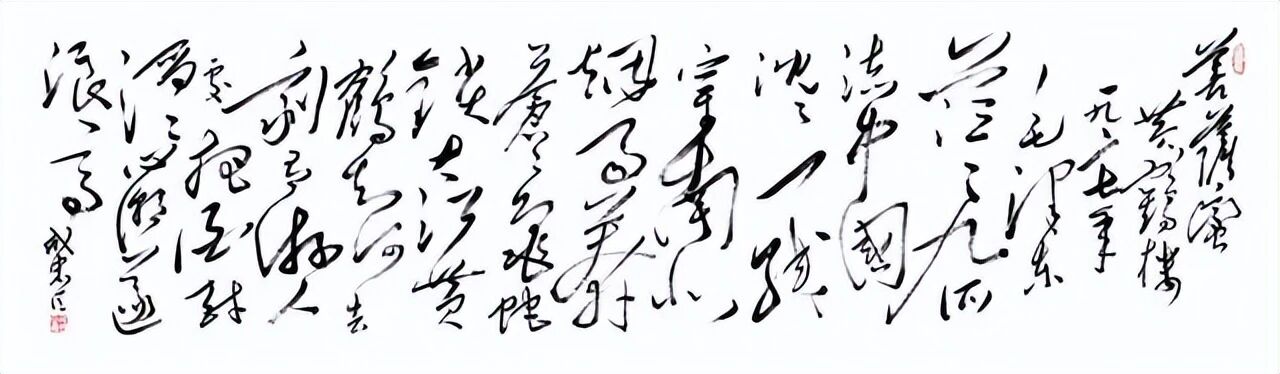 菩萨蛮
黄鹤楼
一九二七年
毛泽东
茫〻九派
流中國
沈〻一线
穿南北
烟雨莽
蒼〻龟蛇
锁大江黄
鹤知何去
剩有游人
处把酒酹
滔〻心潮逐
浪高